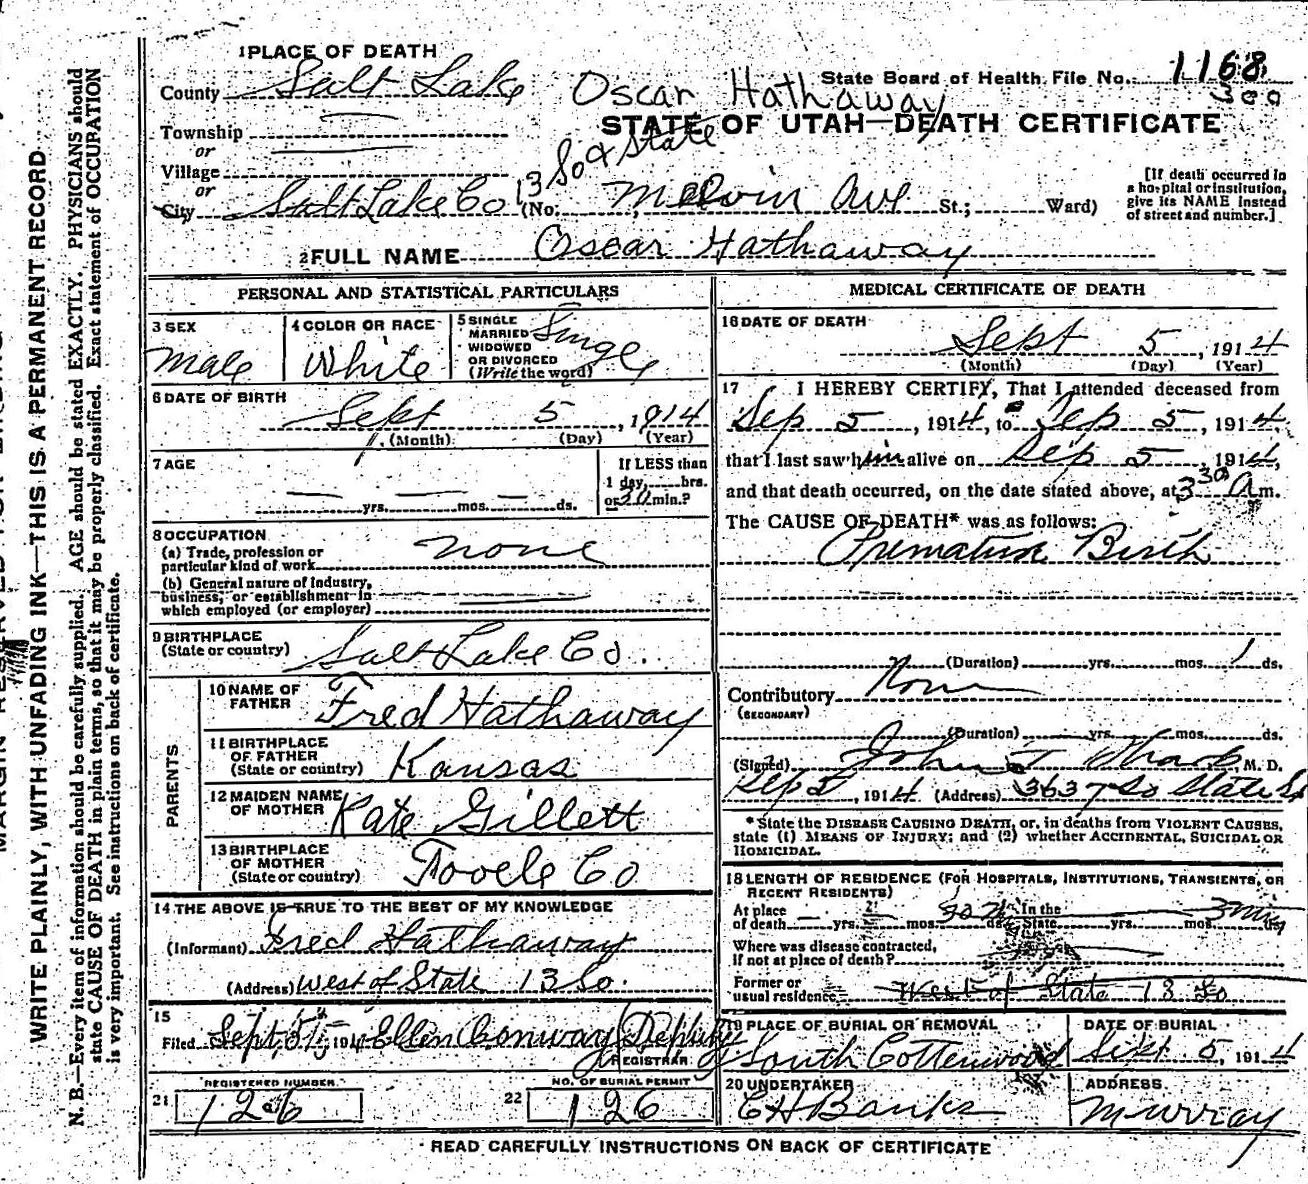 1 PLACE OF DEATH
County Salt Lake
Oscar Hathaway
State Board of Health File No. 1168
300
STATE OF UTAH—DEATH CERTIFICATE
Township
or
Village
or
City Salt Lake Co (No. 13 So & State Melvin Ave St.; Ward)
[If death occurred in a hospital or institution, give its NAME instead of street and number.]
2 FULL NAME Oscar Hathaway
PERSONAL AND STATISTICAL PARTICULARS
3 SEX Male
4 COLOR OR RACE White
5 SINGLE MARRIED WIDOWED OR DIVORCED (Write the word) Single
6 DATE OF BIRTH
Sept 5, 1914
(Month) (Day) (Year)
7 AGE
yrs. mos. ds.
If LESS than 1 day, hrs. or 20 min.?
8 OCCUPATION
(a) Trade, profession or particular kind of work none
(b) General nature of industry, business, or establishment in which employed (or employer)
9 BIRTHPLACE (State or country) Salt Lake Co.
PARENTS
10 NAME OF FATHER Fred Hathaway
11 BIRTHPLACE OF FATHER (State or country) Kansas
12 MAIDEN NAME OF MOTHER Kate Gillett
13 BIRTHPLACE OF MOTHER (State or country) Tooele Co
14 THE ABOVE IS TRUE TO THE BEST OF MY KNOWLEDGE
(Informant) Fred Hathaway
(Address) West of State 13 So.
15
Filed Sept, 5, 191 Ellen Conway (Deputy)
REGISTRAR
REGISTERED NUMBER
21 126
NO. OF BURIAL PERMIT
22 126
MEDICAL CERTIFICATE OF DEATH
16 DATE OF DEATH
Sept 5, 1914
(Month) (Day) (Year)
17 I HEREBY CERTIFY, That I attended deceased from
Sep 5, 1914, to Sep 5, 1914
that I last saw him alive on Sep 5, 1914,
and that death occurred, on the date stated above, at 3 30 A m.
The CAUSE OF DEATH* was as follows:
Premature Birth
(Duration) yrs. mos. 1 ds.
Contributory None
(SECONDARY)
(Duration) yrs. mos. ds.
(Signed) John T M. D.
Sep 5, 1914 (Address) 3637 So State St
* State the DISEASE CAUSING DEATH, or, in deaths from VIOLENT CAUSES, state (1) MEANS OF INJURY; and (2) whether ACCIDENTAL, SUICIDAL OR HOMICIDAL.
18 LENGTH OF RESIDENCE (FOR HOSPITALS, INSTITUTIONS, TRANSIENTS, OR RECENT RESIDENTS)
At place of death yrs. mos. ds. In the State yrs. mos. ds.
Where was disease contracted, if not at place of death?
Former or usual residence West of State 13 So
19 PLACE OF BURIAL OR REMOVAL South Cottonwood
DATE OF BURIAL Sept 5, 1914
20 UNDERTAKER C H Banks
ADDRESS Murray
READ CAREFULLY INSTRUCTIONS ON BACK OF CERTIFICATE
WRITE PLAINLY, WITH UNFADING INK—THIS IS A PERMANENT RECORD
N. B.—Every item of information should be carefully supplied. AGE should be stated EXACTLY. PHYSICIANS should
state CAUSE OF DEATH in plain terms, so that it may be properly classified. Exact statement of OCCUPATION
is very important. See instructions on back of certificate.